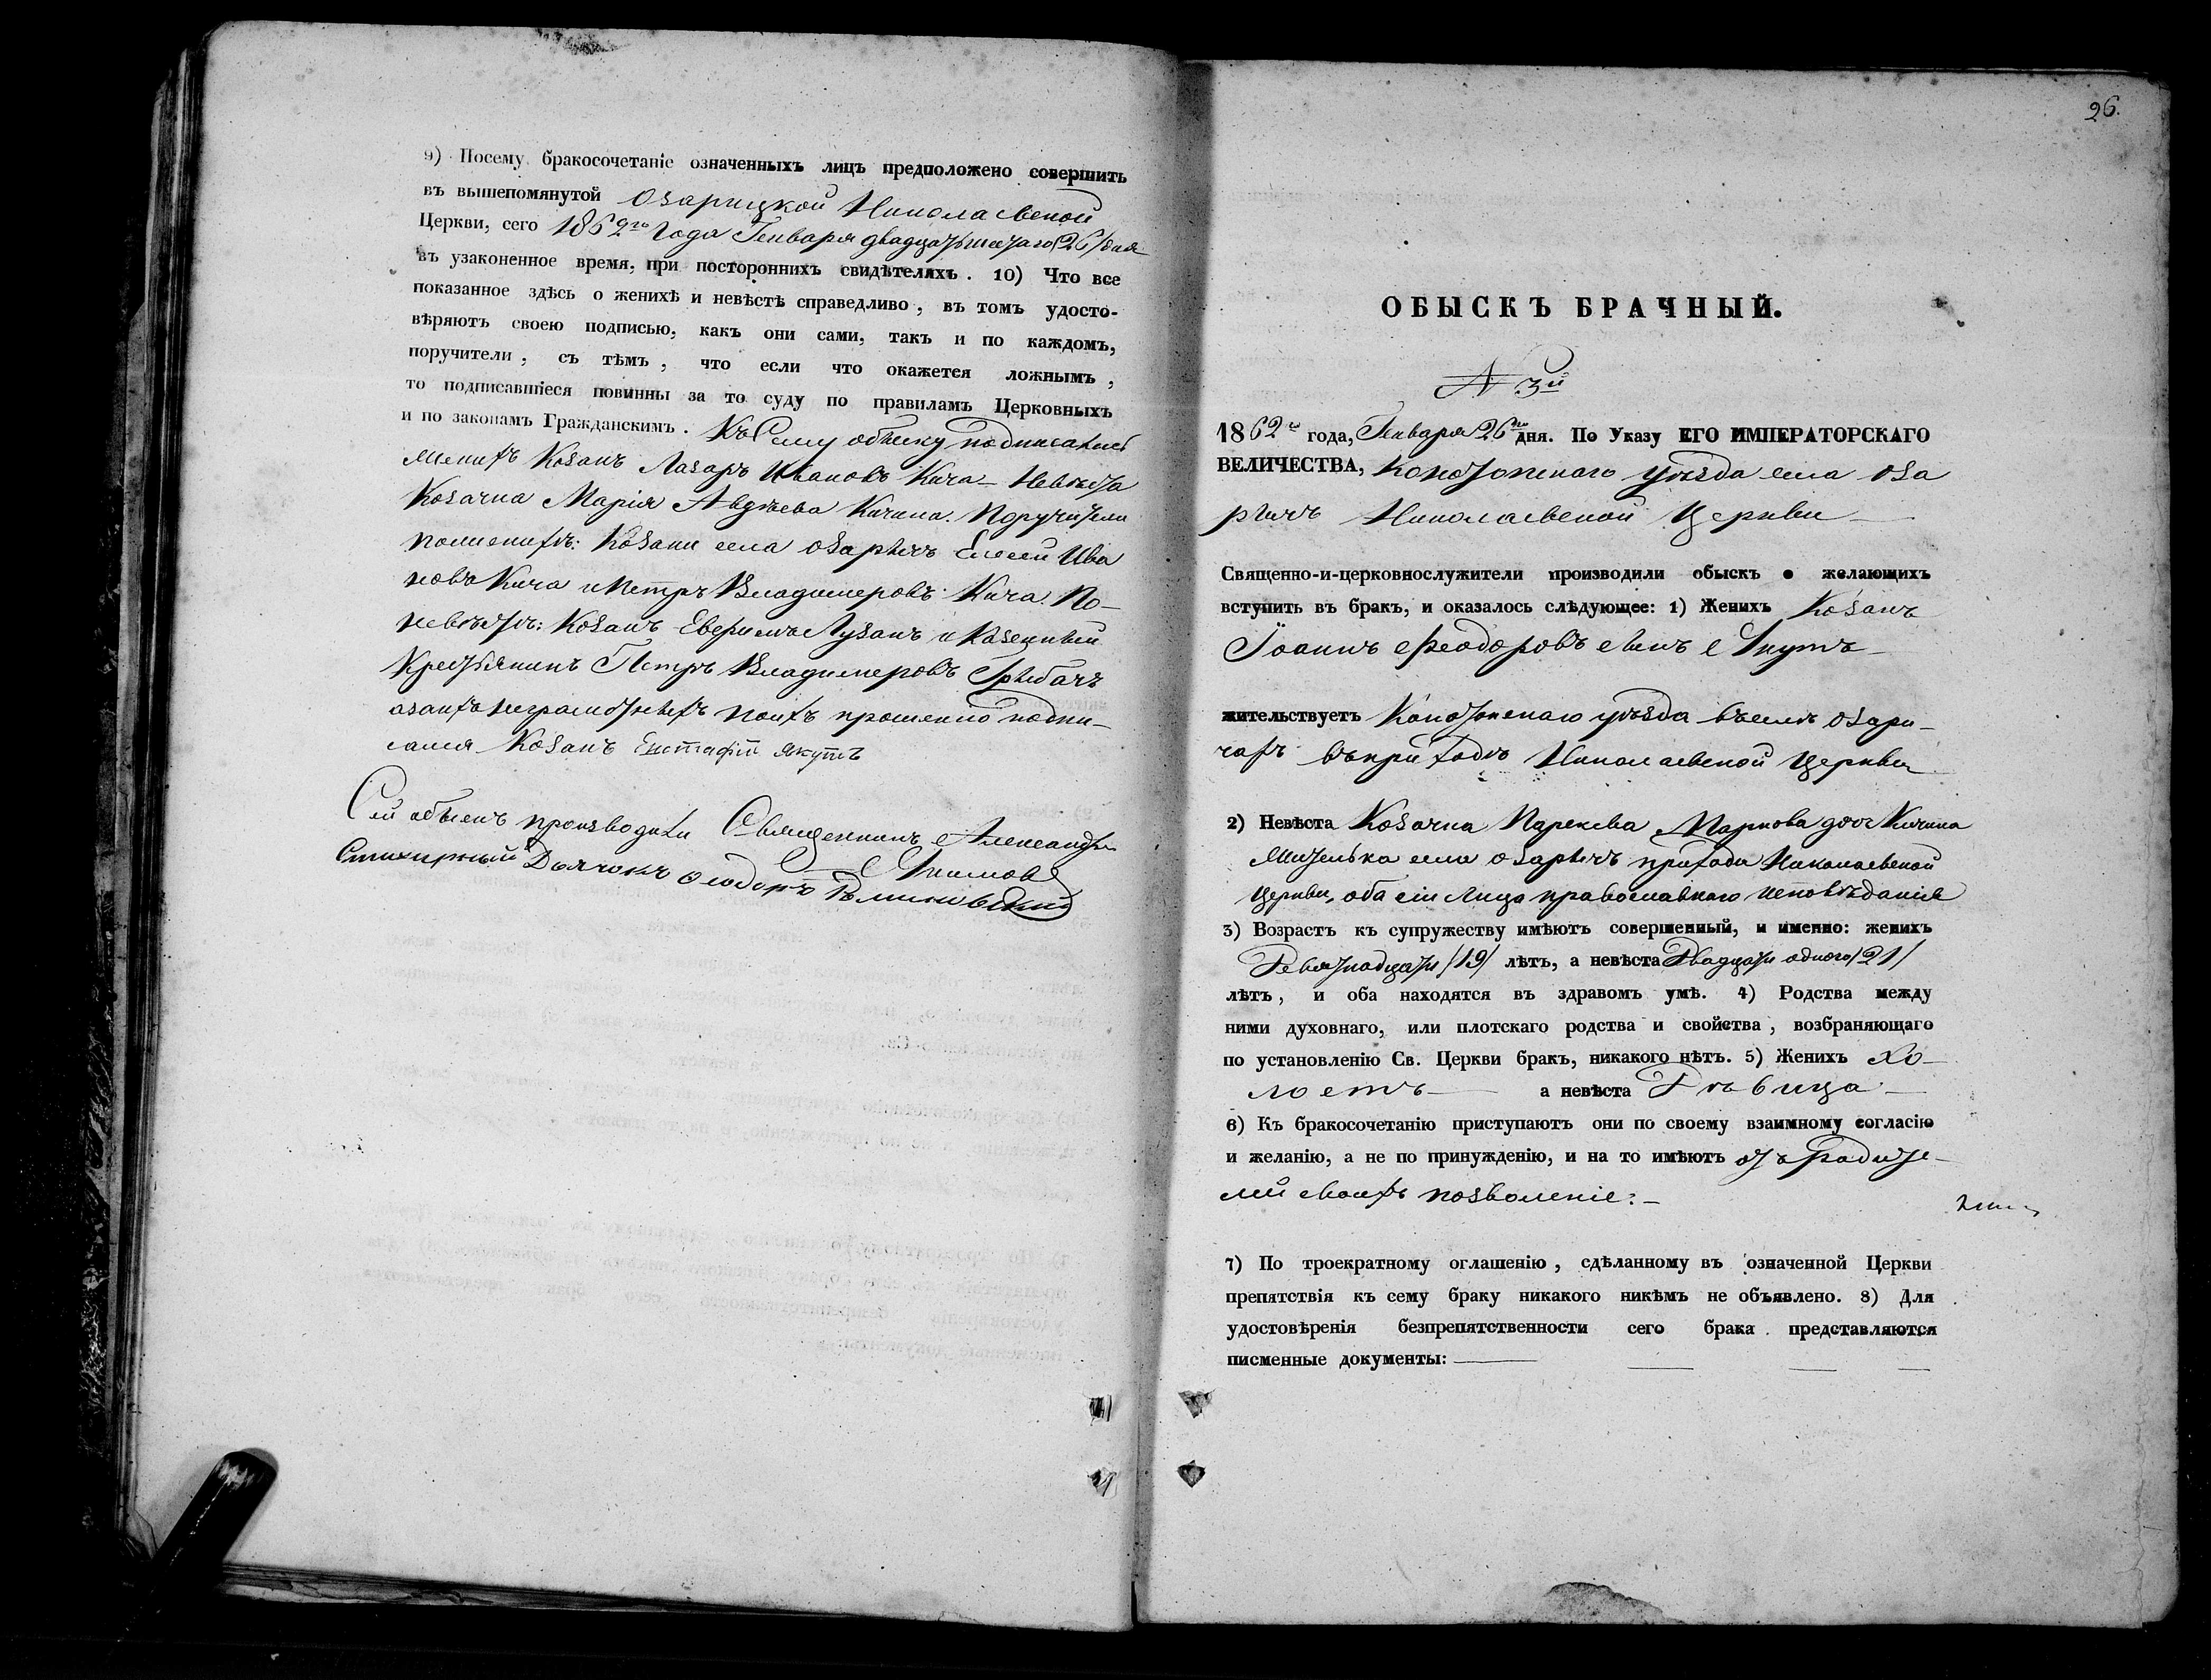 9) Посему бракосочетаніе означенныхъ лицъ предположено совершить
въ вышепомянутой Озарицкой Николаевской
Церкви, сего 1862го Года Генваря двадцать шестаго /26/ дня
въ узаконенное время, при постороннихъ свидѣтеляхъ. 10) Что все
показанное здѣсь о женихѣ и невѣстѣ справедливо, въ томъ удосто-
вѣряютъ своею подписью, какъ они сами, такъ и по каждомъ,
поручители, съ тѣмъ, что если что окажется ложнымъ,
то подписавшіеся повинны за то суду по правиламъ Церковныхъ
и по законамъ Гражданскимъ. Къ Сему обыску подписались
Женихъ Козакъ Лазарь Ивановъ Кича – Невѣста
Козачка Марія Авдѣева Кичина. Поручители
по женихѣ: Козаки села Озаричъ Елисей Ива
новъ Кича и Петръ Владимеровъ Кича. По –
невѣстѣ: Козакъ Лузанъ и Казенный
Крестьянинъ Петръ Владимеровъ Грибачъ
а за ихъ неграмотныхъ по ихъ прошенію подпи –
сался Козакъ Евстафій Якутъ
Сей обыскъ производили Священникъ Александръ
Стихирный Дьячокъ Ѳеодоръ
26.
ОБЫСКЪ БРАЧНЫЙ.
N 3й
1862го года, Генваря 26го дня. По Указу ЕГО ИМПЕРАТОРСКАГО
ВЕЛИЧЕСТВА, Конотопскаго уѣзда села Оза
ричъ Николаевской Церкви
Священно-и-церковнослужители производили обыскъ о желающихъ
вступить въ бракъ, и оказалось слѣдующее: 1) Женихъ Козакъ
Іоаннъ Феодоровъ сынъ Якутъ
жительствуетъ Конотопскаго уѣзда въ селѣ Озари –
чахъ въ приходѣ Николаевской Церкви
2) Невѣста Козачка Парскева Маркова дочь Кичина
Жителька села Озаричъ прихода Николаевской
Церкви, оба сіи Лица православнаго исповѣданія
3) Возрастъ къ супружеству имѣютъ совершенный, и именно: женихъ
Девятнадцати /19/ лѣтъ, а невѣста Двадцати одного /21/
лѣтъ, и оба находятся въ здравомъ умѣ. 4) Родства между
ними духовнаго, или плотскаго родства и свойства, возбраняющаго
по установленію Св. Церкви бракъ, никакого нѣтъ. 5) Женихъ Хо –
лостъ а невѣста Дѣвица
6) Къ бракосочетанію приступаютъ они по своему взаимному согласію
и желанію, а не по принужденію, и на то имѣютъ отъ Родите –
лей своихъ позволеніе: –
7) По троекратному оглашенію, сдѣланному въ означенной Церкви
препятствія къ сему браку никакого никѣмъ не объявлено. 8) Для
удостовѣренія безпрепятственности сего брака представляются
писменные документы: